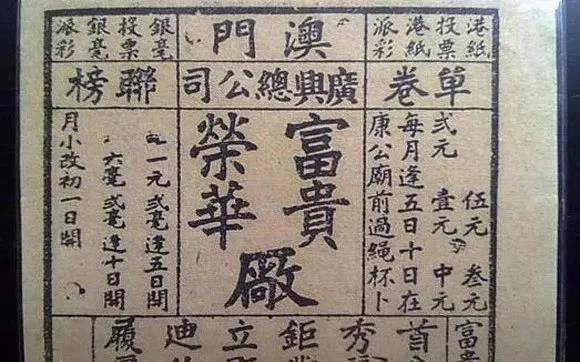 港紙
投票
港紙
派彩
澳門
銀毫
投票
銀毫
派彩
單卷
廣興總公司
聯榜
伍元 叁元
弍元 壹元 中元
每月逢五日十日在
康公廟前過繩杯卜
富貴
榮華
廠
一元弍毫逢五日開
六毫弍毫逢十日開
月小改初一日開
富貴
首
秀
鉅
立
迪
履